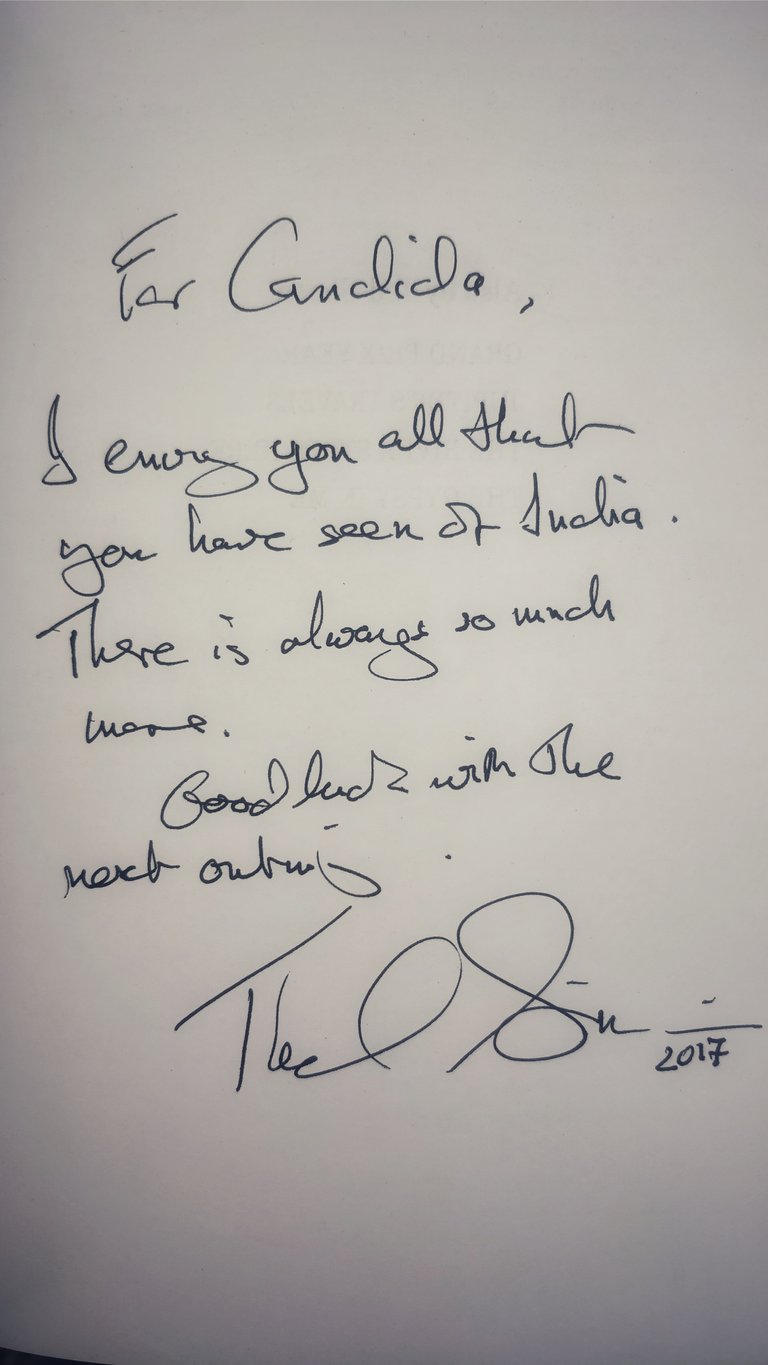 For Candida,
I envy you all that
you have seen of India.
There is always so much
more.
Good luck with the
next outing.
Ted Simon
2017